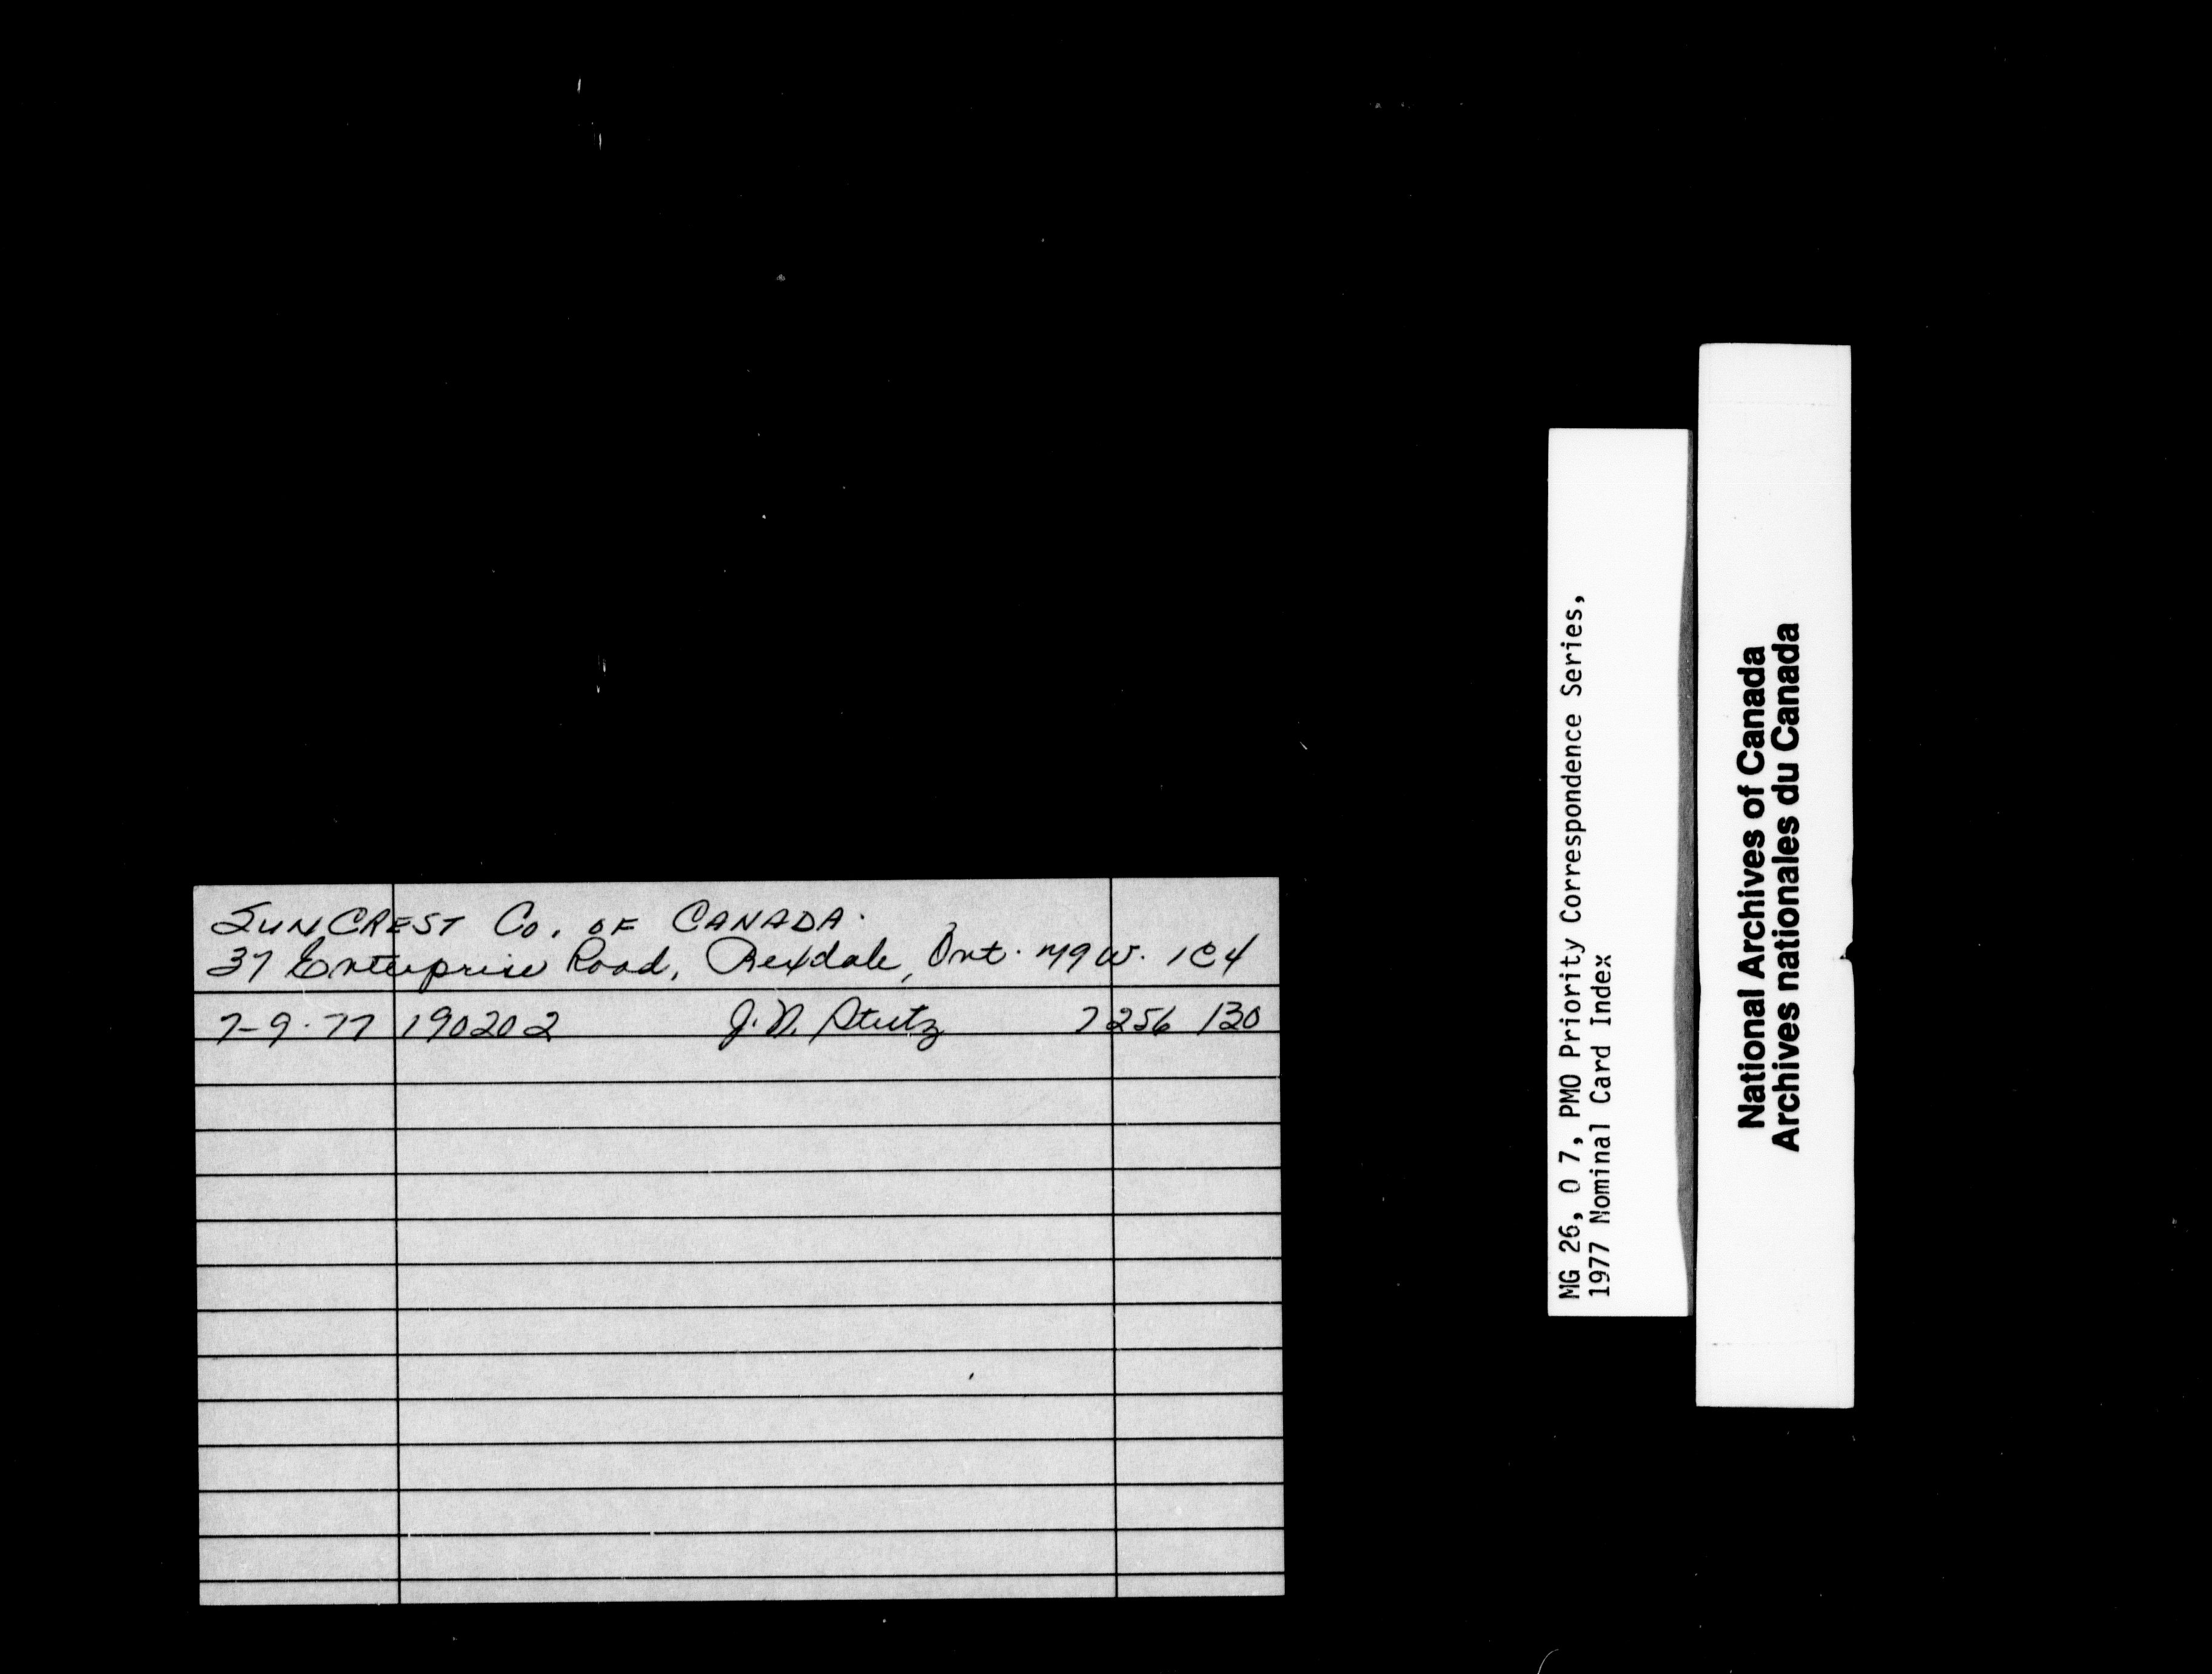 SUNCREST CO. OF CANADA.
37 Enterprise Road, Rexdale, Ont. M9W. 1C4
7-9-77 190202 J.N. Stutz 7256 130
MG 26, O 7, PMO Priority Correspondence Series,
1977 Nominal Card Index
National Archives of Canada
Archives nationales du Canada